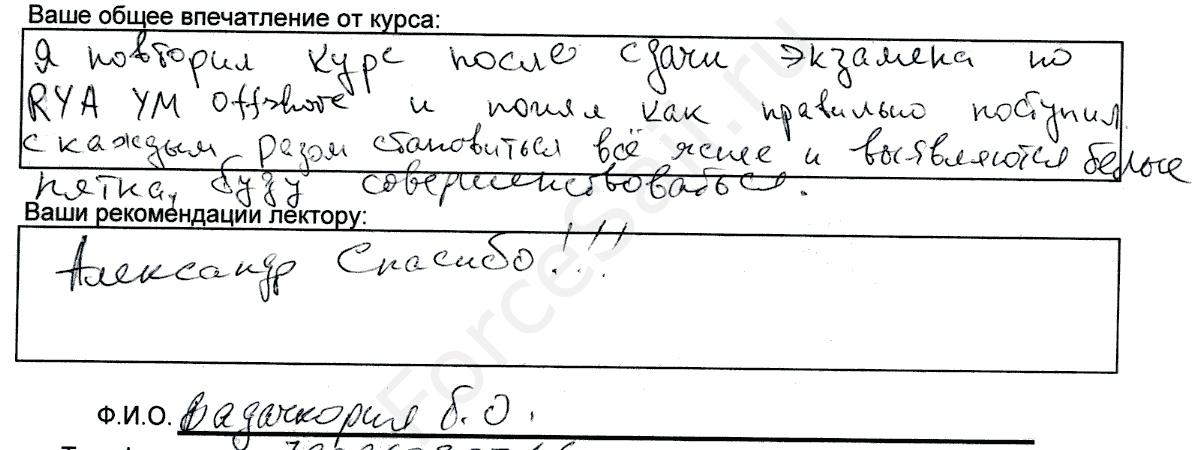 Ваше общее впечатление от курса:
Я повторил курс после сдачи экзамена по
RYA YM Offshore и понял как правильно поступил
с каждым разом становиться всё яснее и выявляются белые
пятка, буду совершенствоваться.
Ваши рекомендации лектору:
Александр Спасибо!!!
Ф.И.О. Бадачкория Б.О.
ForceSail.ru